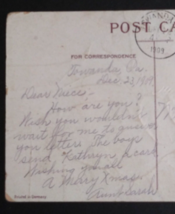 POST CA
FOR CORRESPONDENCE
Towanda, Pa.
Dear Niece:
How are you?
Wish you wouldn't
wait for me to
you letters. The boys
send Kathryn a card
Wishing you all
A Merry Xmas